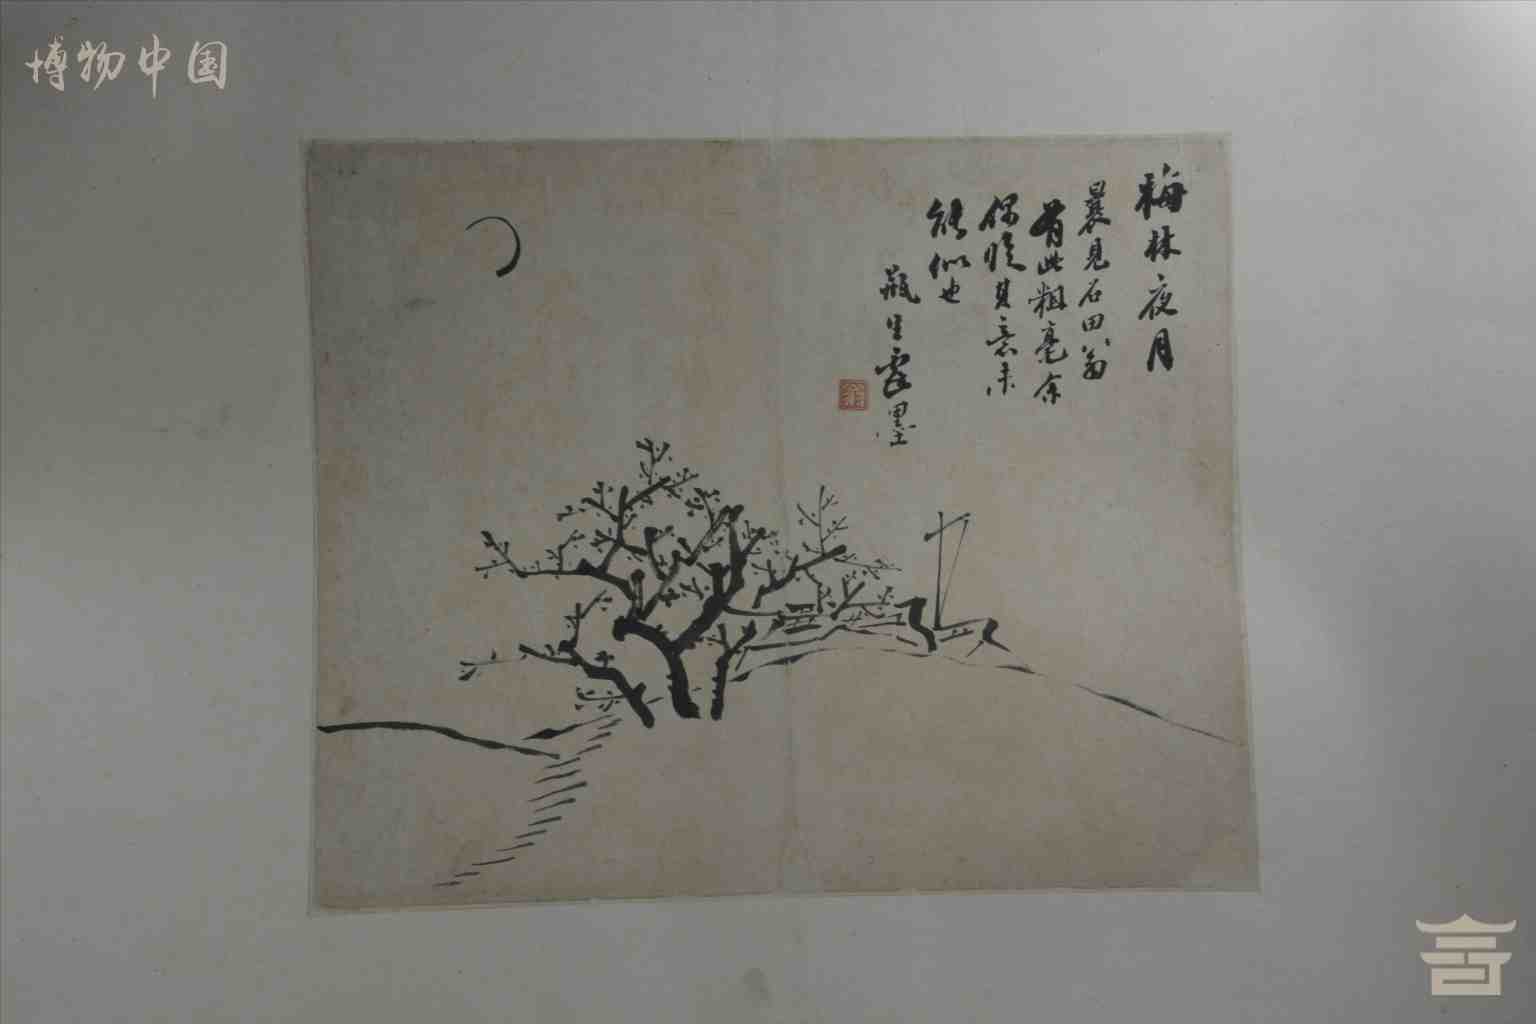 博物中国
梅林夜月
曩见石田翁
有此粗毫余
偶临其意未
能似也
瓶生露墨
翁